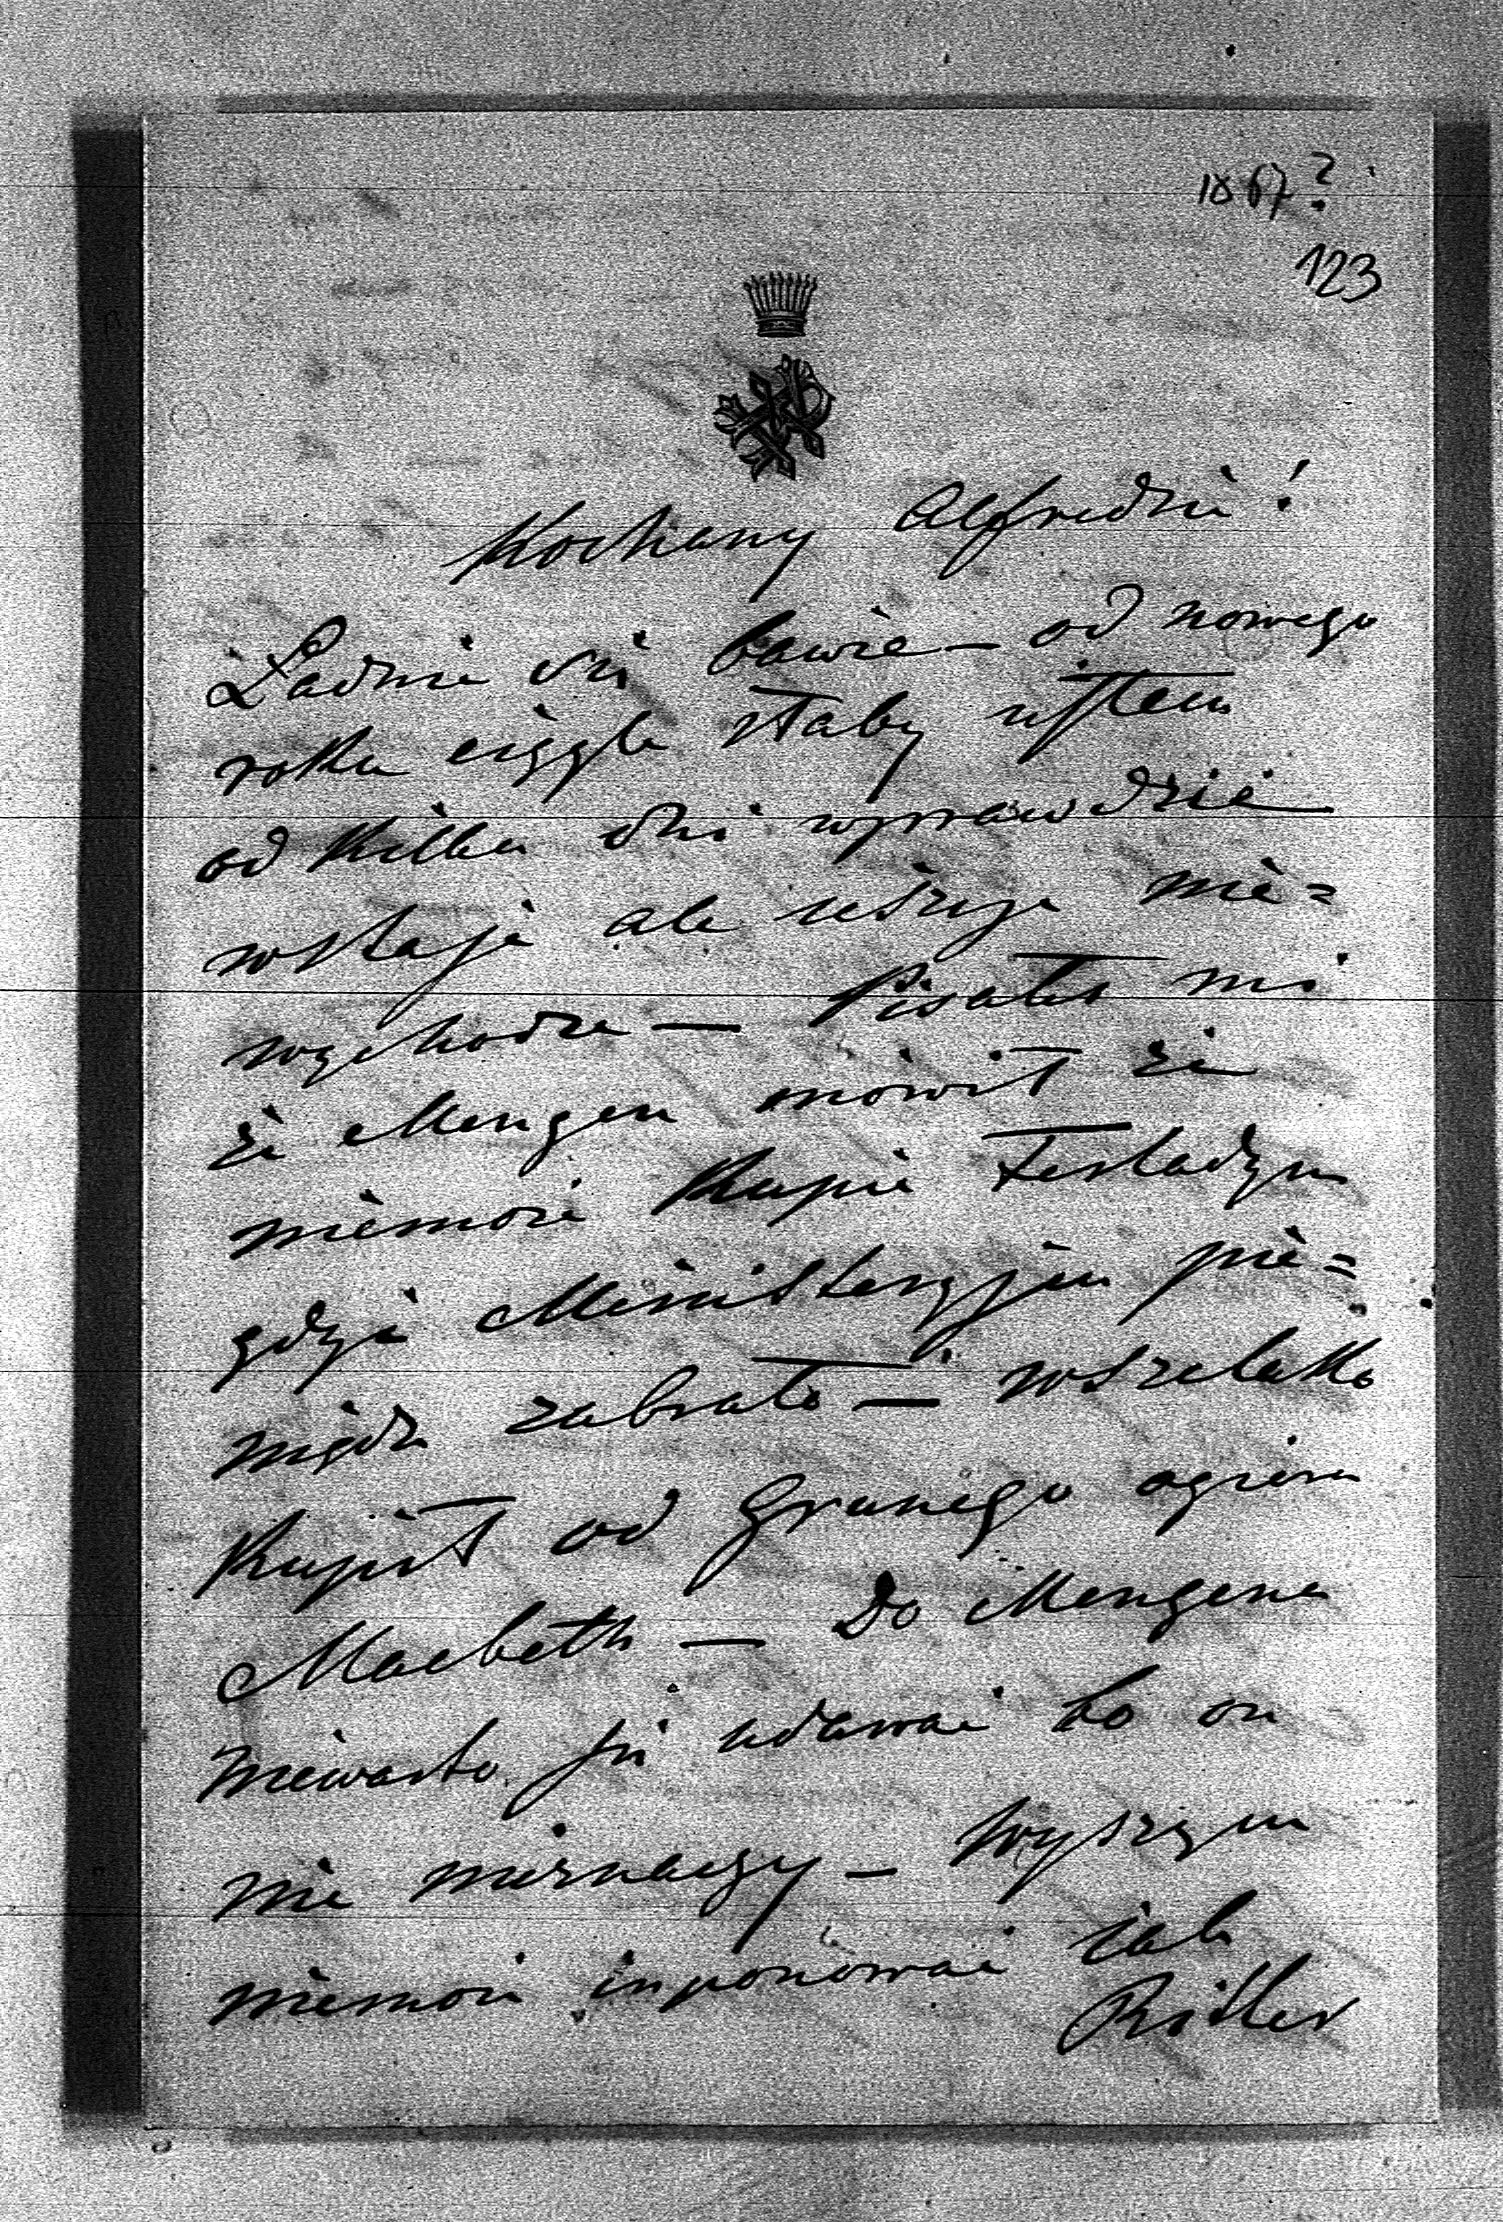 1867?
123
Kochany Alfredzie!
Ładnie się bawie — od nowego
roku ciągle słaby
od kilku dni wprawdzie
wstaje ale jeszcze nie=
wychodze — Pisałes mi
że Mengen mówił że
niemoże kupić
gdyż Ministeryjum pie=
niądze zabrało — wszelako
kupił od Grunego ogiera
Macbeth — Do Mengena
niewarto się udawać bo on
nic nieznaczy — Wyższym
niemoże imponować jak
Ritter